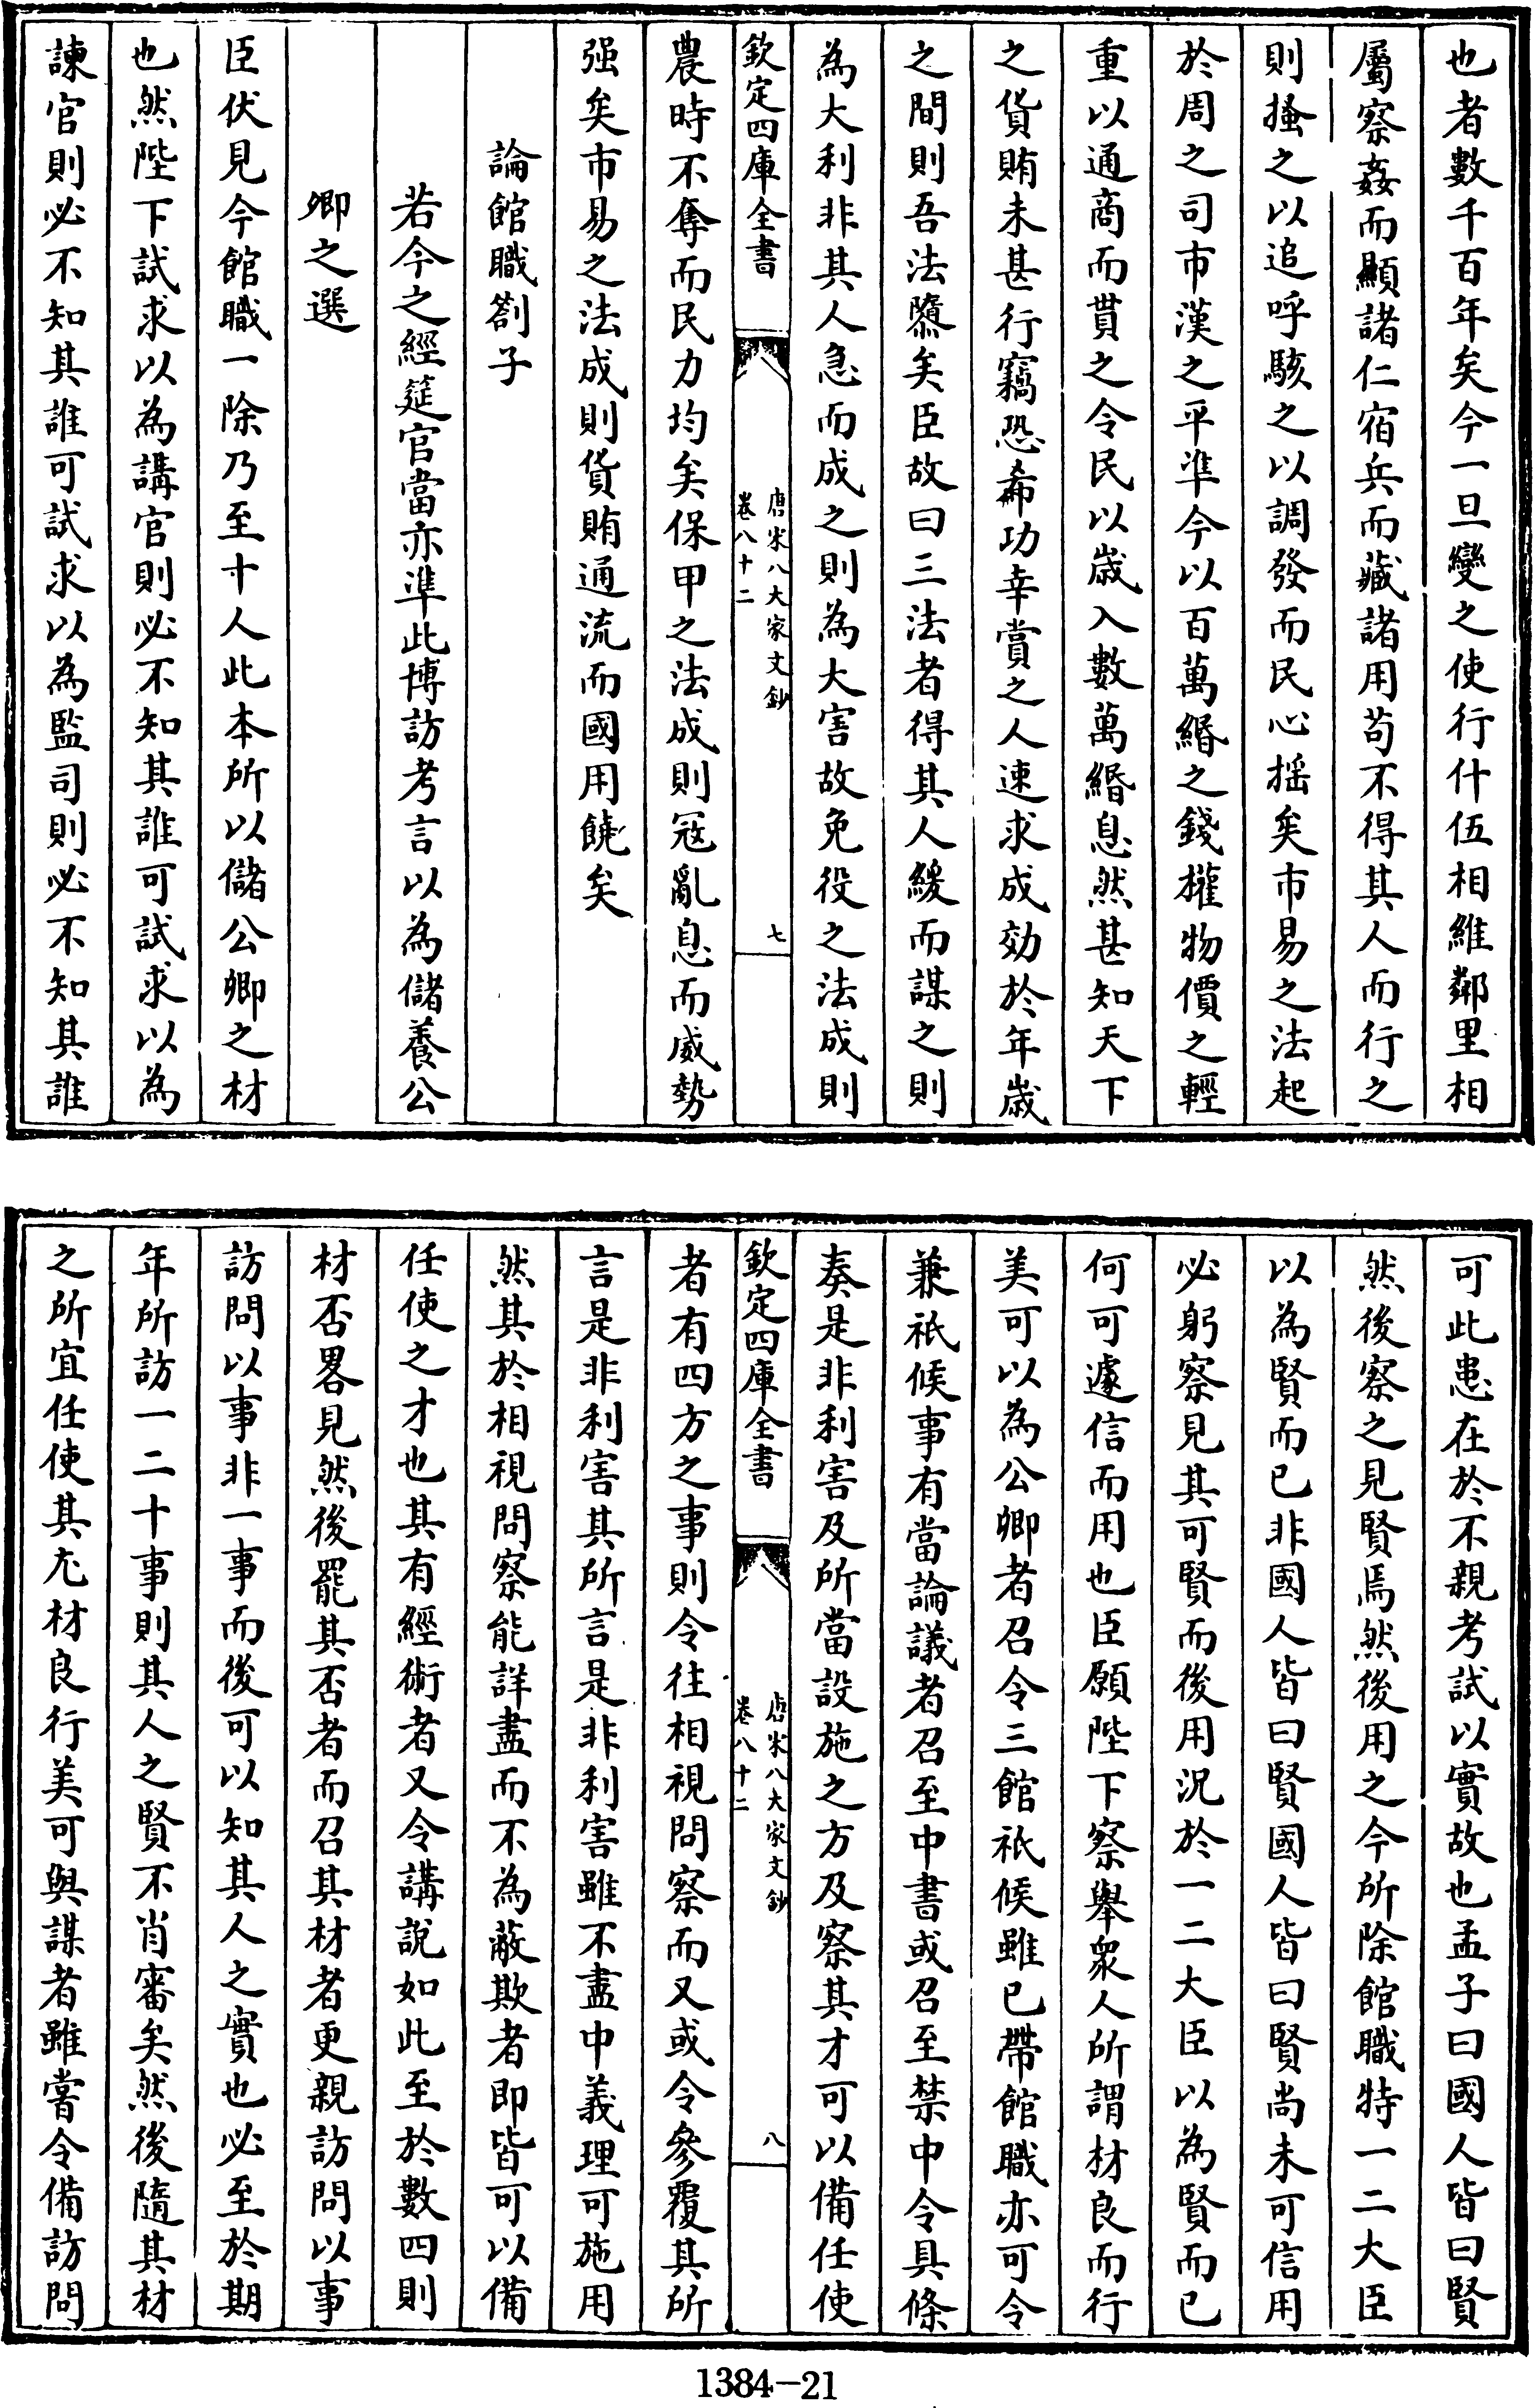 也者數千百年矣今一旦變之使行什伍相維鄰里相
屬察姦而顯諸仁宿兵而藏諸用苟不得其人而行之
則搔之以追呼駭之以調發而民心揺矣市易之法起
於周之司市漢之平準今以百萬緡之錢權物價之輕
重以通商而貰之令民以歳入數萬緡息然甚知天下
之貨賄未甚行竊恐希功幸賞之人速求成効於年歳
之間則吾法隳矣臣故曰三法者得其人緩而謀之則
為大利非其人急而成之則為大害故免役之法成則
欽定四庫全書
唐宋八大家文鈔
卷八十二
七
農時不奪而民力均矣保甲之法成則冦亂息而威勢
强矣市易之法成則貨賄通流而國用饒矣
論館職劄子
若今之經筵官當亦準此博訪考言以為儲養公
卿之選
臣伏見今館職一除乃至十人此本所以儲公卿之材
也然陛下試求以為講官則必不知其誰可試求以為
諫官則必不知其誰可試求以為監司則必不知其誰
可此患在於不親考試以實故也孟子曰國人皆曰賢
然後察之見賢焉然後用之今所除館職特一二大臣
以為賢而已非國人皆曰賢國人皆曰賢尚未可信用
必躬察見其可賢而後用況於一二大臣以為賢而已
何可遽信而用也臣願陛下察舉衆人所謂材良而行
美可以為公卿者召令三館祇候雖已帶館職亦可令
兼祇候事有當論議者召至中書或召至禁中令具條
奏是非利害及所當設施之方及察其才可以備任使
欽定四庫全書
唐宋八大家文鈔
卷八十二
八
者有四方之事則令往相視問察而又或令參覆其所
言是非利害其所言是非利害雖不盡中義理可施用
然其於相視問察能詳盡而不為蔽欺者即皆可以備
任使之才也其有經術者又令講說如此至於數四則
材否畧見然後罷其否者而召其材者更親訪問以事
訪問以事非一事而後可以知其人之實也必至於期
年所訪一二十事則其人之賢不肖審矣然後隨其材
之所宜任使其尤材良行美可與謀者雖嘗令備訪問
1384-21